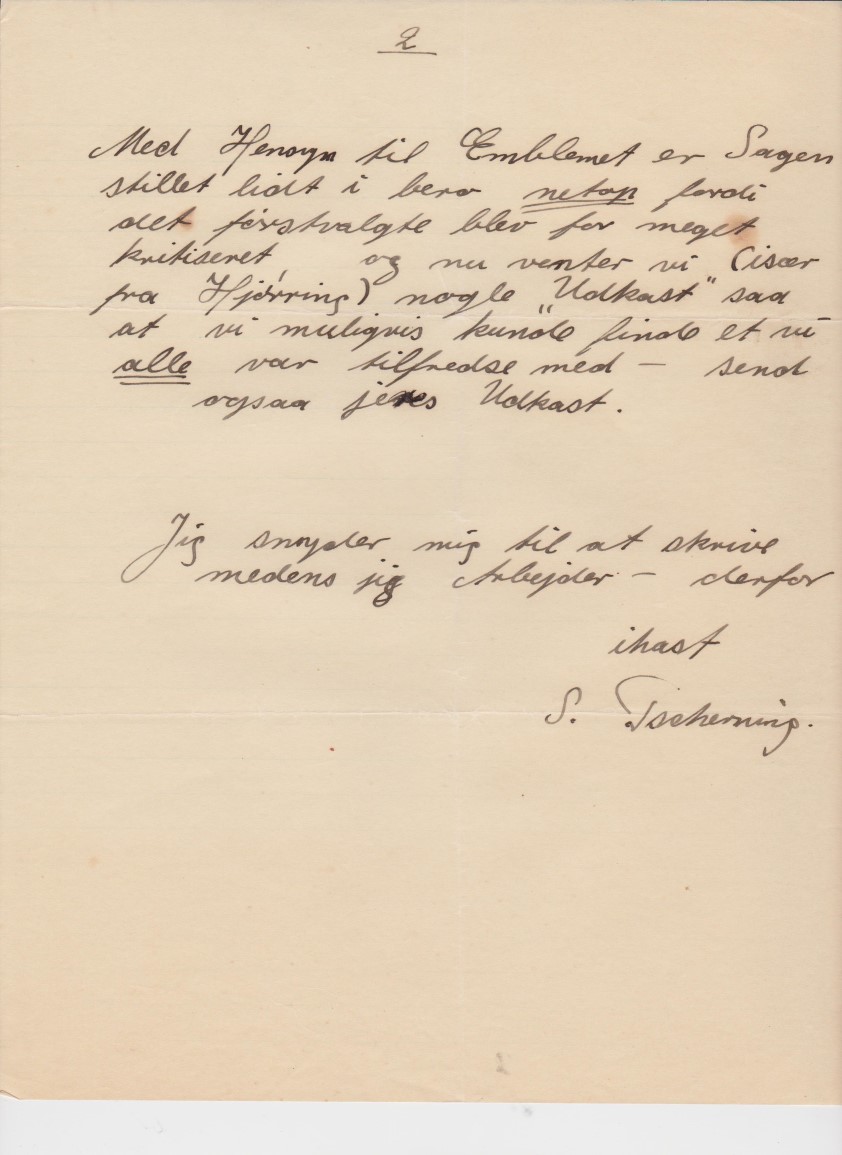 2
Med Hensyn til Emblemet er Sagen
stillet lidt i bero netop fordi
det førstvalgte blev for meget
kritiseret og nu venter vi (især
fra Hjørring) nogle "Udkast" saa
at vi muligvis kunde finde et vi
alle var tilfredse med — send
ogsaa jeres Udkast.
Jig snyder mig til at skrive
medens jig Arbejder — derfor
ihast
S. Tscherning.